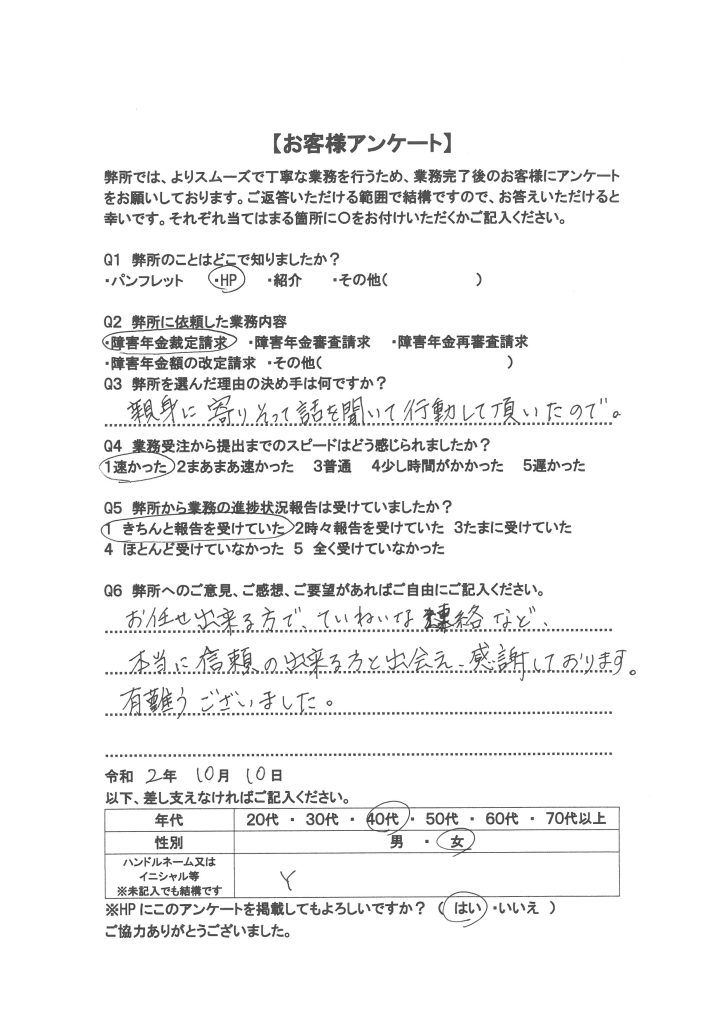 【お客様アンケート】
弊所では、よりスムーズで丁寧な業務を行うため、業務完了後のお客様にアンケート
をお願いしております。ご返答いただける範囲で結構ですので、お答えいただけると
幸いです。それぞれ当てはまる箇所に〇をお付けいただくかご記入ください。
Q1 弊所のことはどこで知りましたか？
・パンフレット ・HP ・紹介 ・その他( )
Q2 弊所に依頼した業務内容
・障害年金裁定請求 ・障害年金審査請求 ・障害年金再審査請求
・障害年金額の改定請求 ・その他( )
Q3 弊所を選んだ理由の決め手は何ですか？
親身に寄りそって話を聞いて行動して頂いたので。
Q4 業務受注から提出までのスピードはどう感じられましたか？
1速かった 2まあまあ速かった 3普通 4少し時間がかかった 5遅かった
Q5 弊所から業務の進捗状況報告は受けていましたか？
1 きちんと報告を受けていた 2時々報告を受けていた 3たまに受けていた
4 ほとんど受けていなかった 5 全く受けていなかった
Q6 弊所へのご意見、ご感想、ご要望があればご自由にご記入ください。
お任せ出来る方で、ていねいな連絡など、
本当に信頼の出来る方と出会え、感謝しております。
有難うございました。
令和 2年 10月 10日
以下、差し支えなければご記入ください。
年代 20代 ・ 30代 ・ 40代 ・ 50代 ・ 60代 ・ 70代以上
性別 男 ・ 女
ハンドルネーム又は
イニシャル等 Y
※未記入でも結構です
※HPにこのアンケートを掲載してもよろしいですか？ （ はい ・いいえ ）
ご協力ありがとうございました。